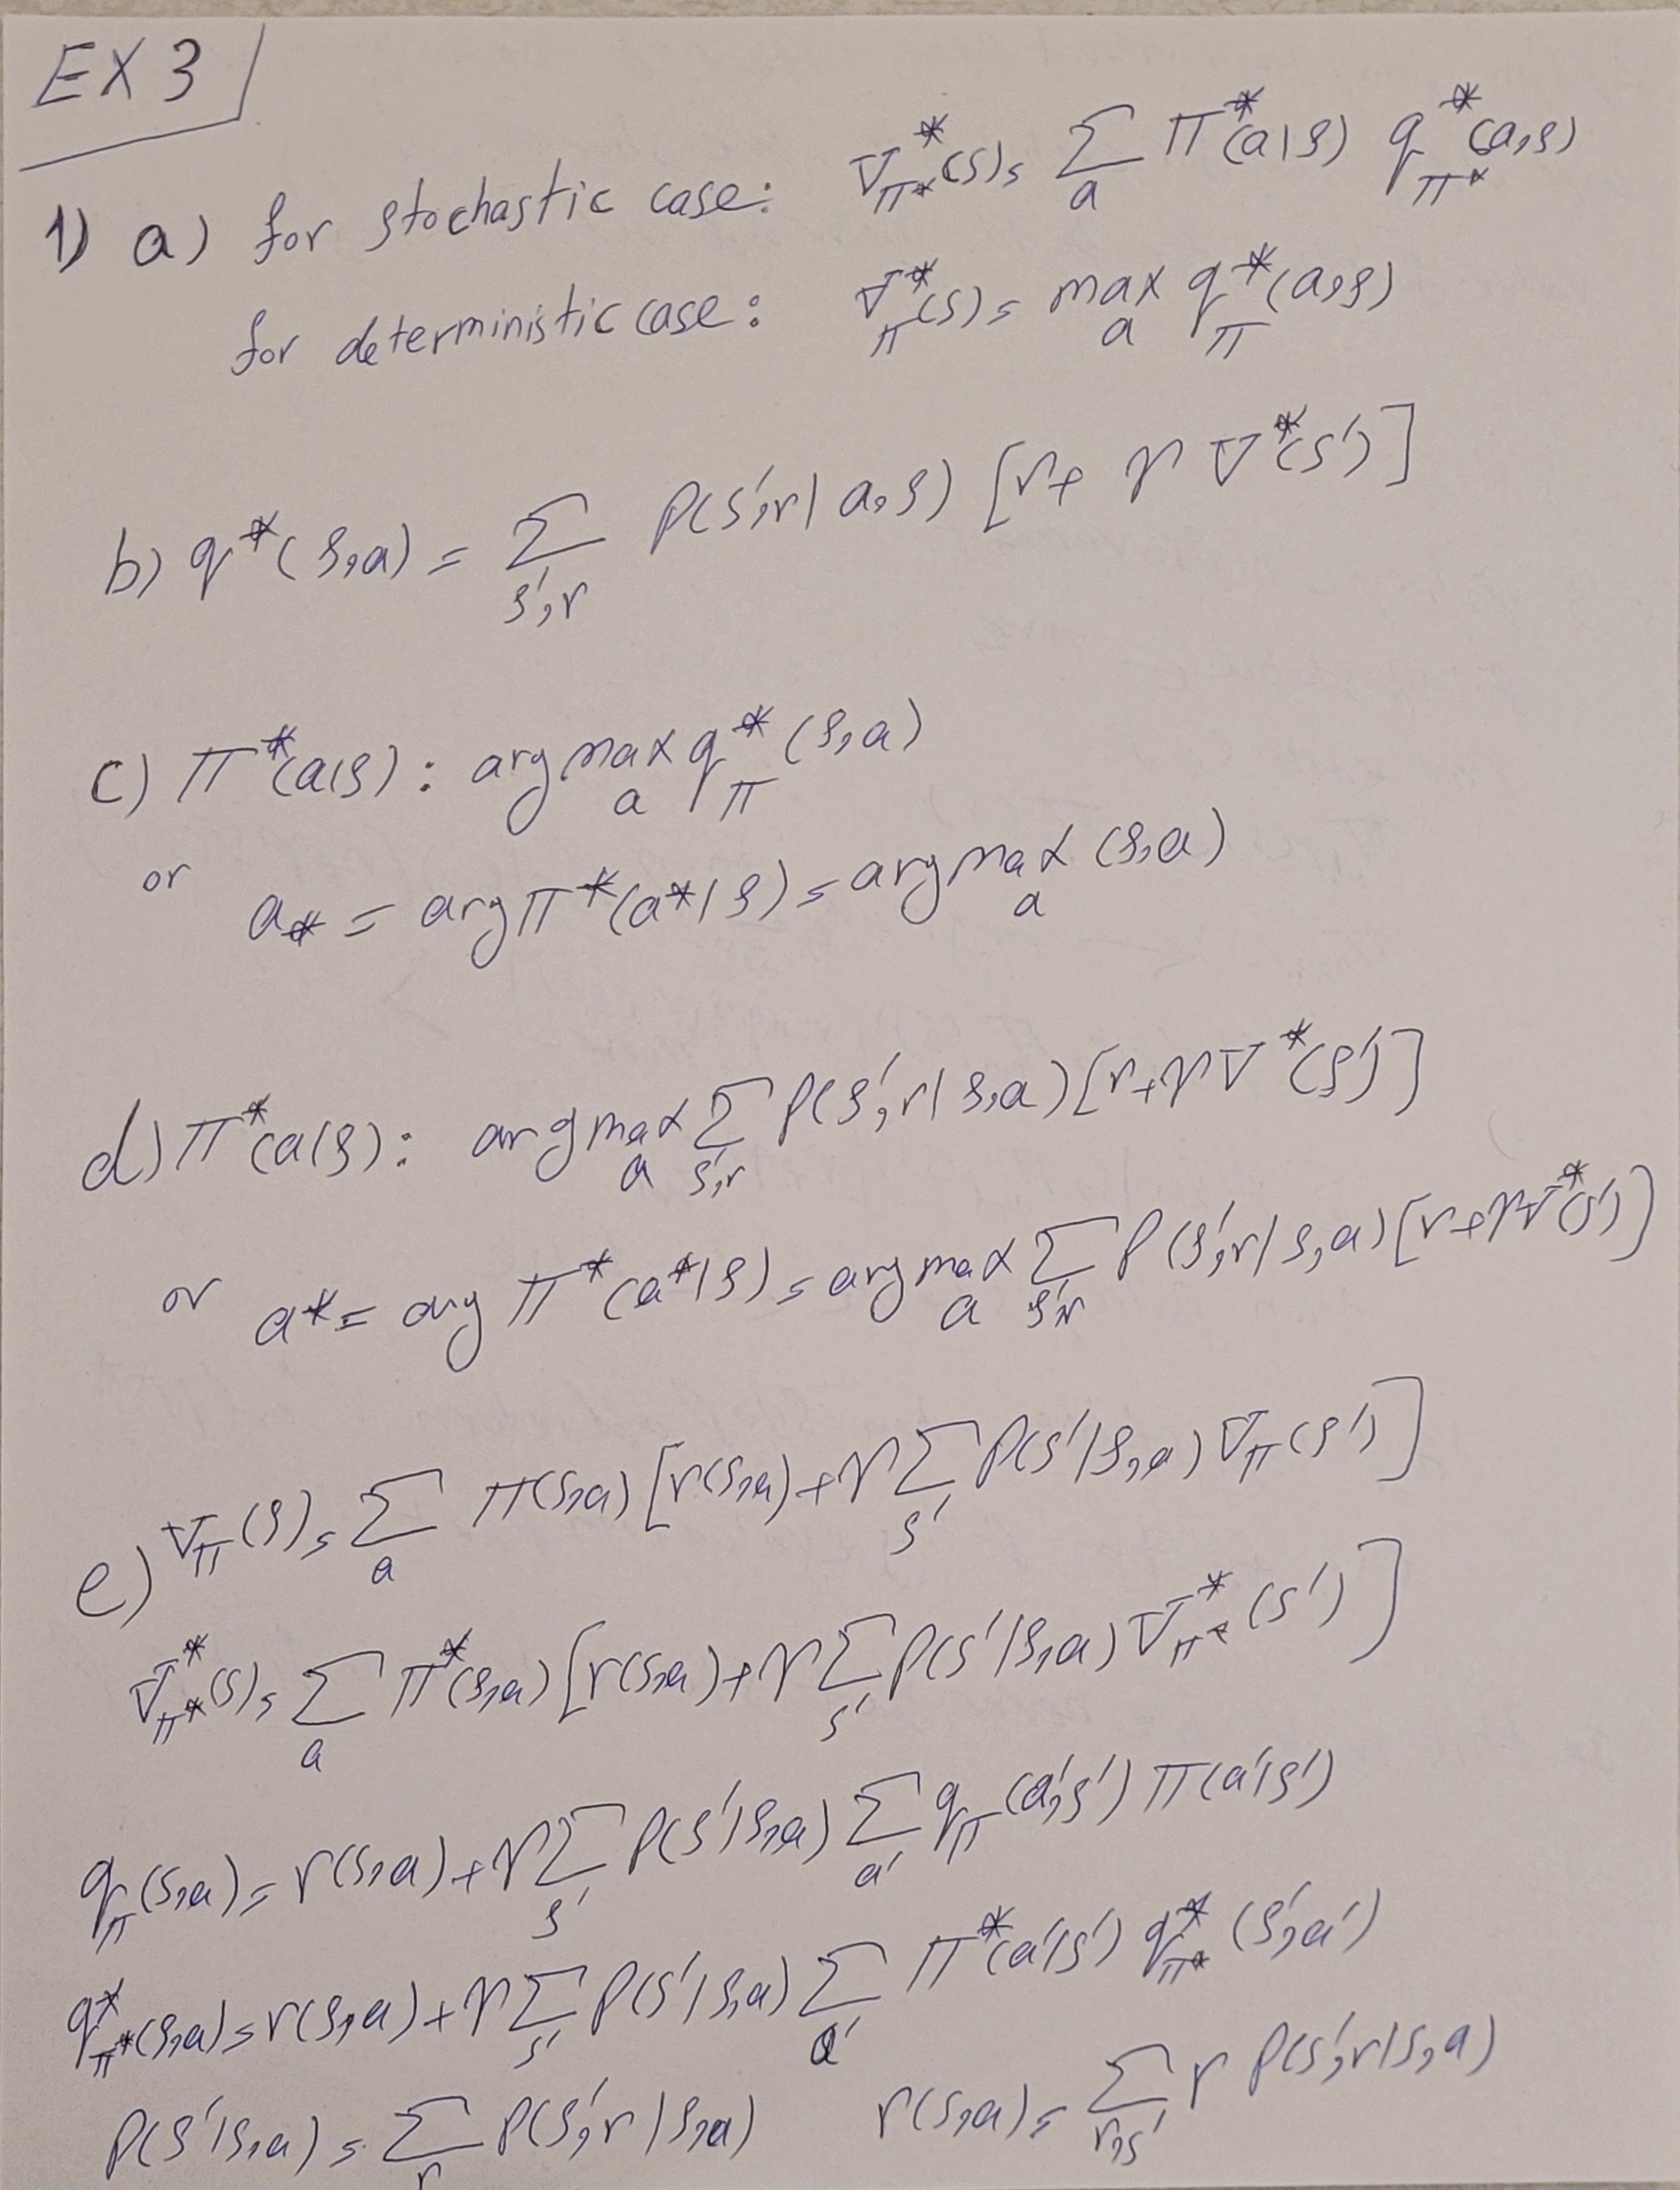 EX 3
1) a) for stochastic case: V*_π*(s) = Σ_a π*(a|s) q*_π*(a,s)
for deterministic case: V*_π(s) = max_a q*_π(a,s)
b) q*(s,a) = Σ_s',r P(s',r|a,s) [r + γ V*(s')]
c) π*(a|s) : argmax_a q*_π(s,a)
or a* = arg π*(a*|s) = argmax_a (s,a)
d) π*(a|s) : argmax_a Σ_s',r P(s',r|s,a) [r + γ V*(s')]
or a* = arg π*(a*|s) = argmax_a Σ_s',r P(s',r|s,a) [r + γ V*(s')]
e) V_π(s) = Σ_a π(s,a) [r(s,a) + γ Σ_s' P(s'|s,a) V_π(s')]
V*_π*(s) = Σ_a π*(s,a) [r(s,a) + γ Σ_s' P(s'|s,a) V*_π*(s')]
q_π(s,a) = r(s,a) + γ Σ_s' P(s'|s,a) Σ_a' q_π(a',s') π(a'|s')
q*_π*(s,a) = r(s,a) + γ Σ_s' P(s'|s,a) Σ_a' π*(a'|s') q*_π*(s',a')
P(s'|s,a) = Σ_r P(s',r|s,a) r(s,a) = Σ_r,s' r P(s',r|s,a)